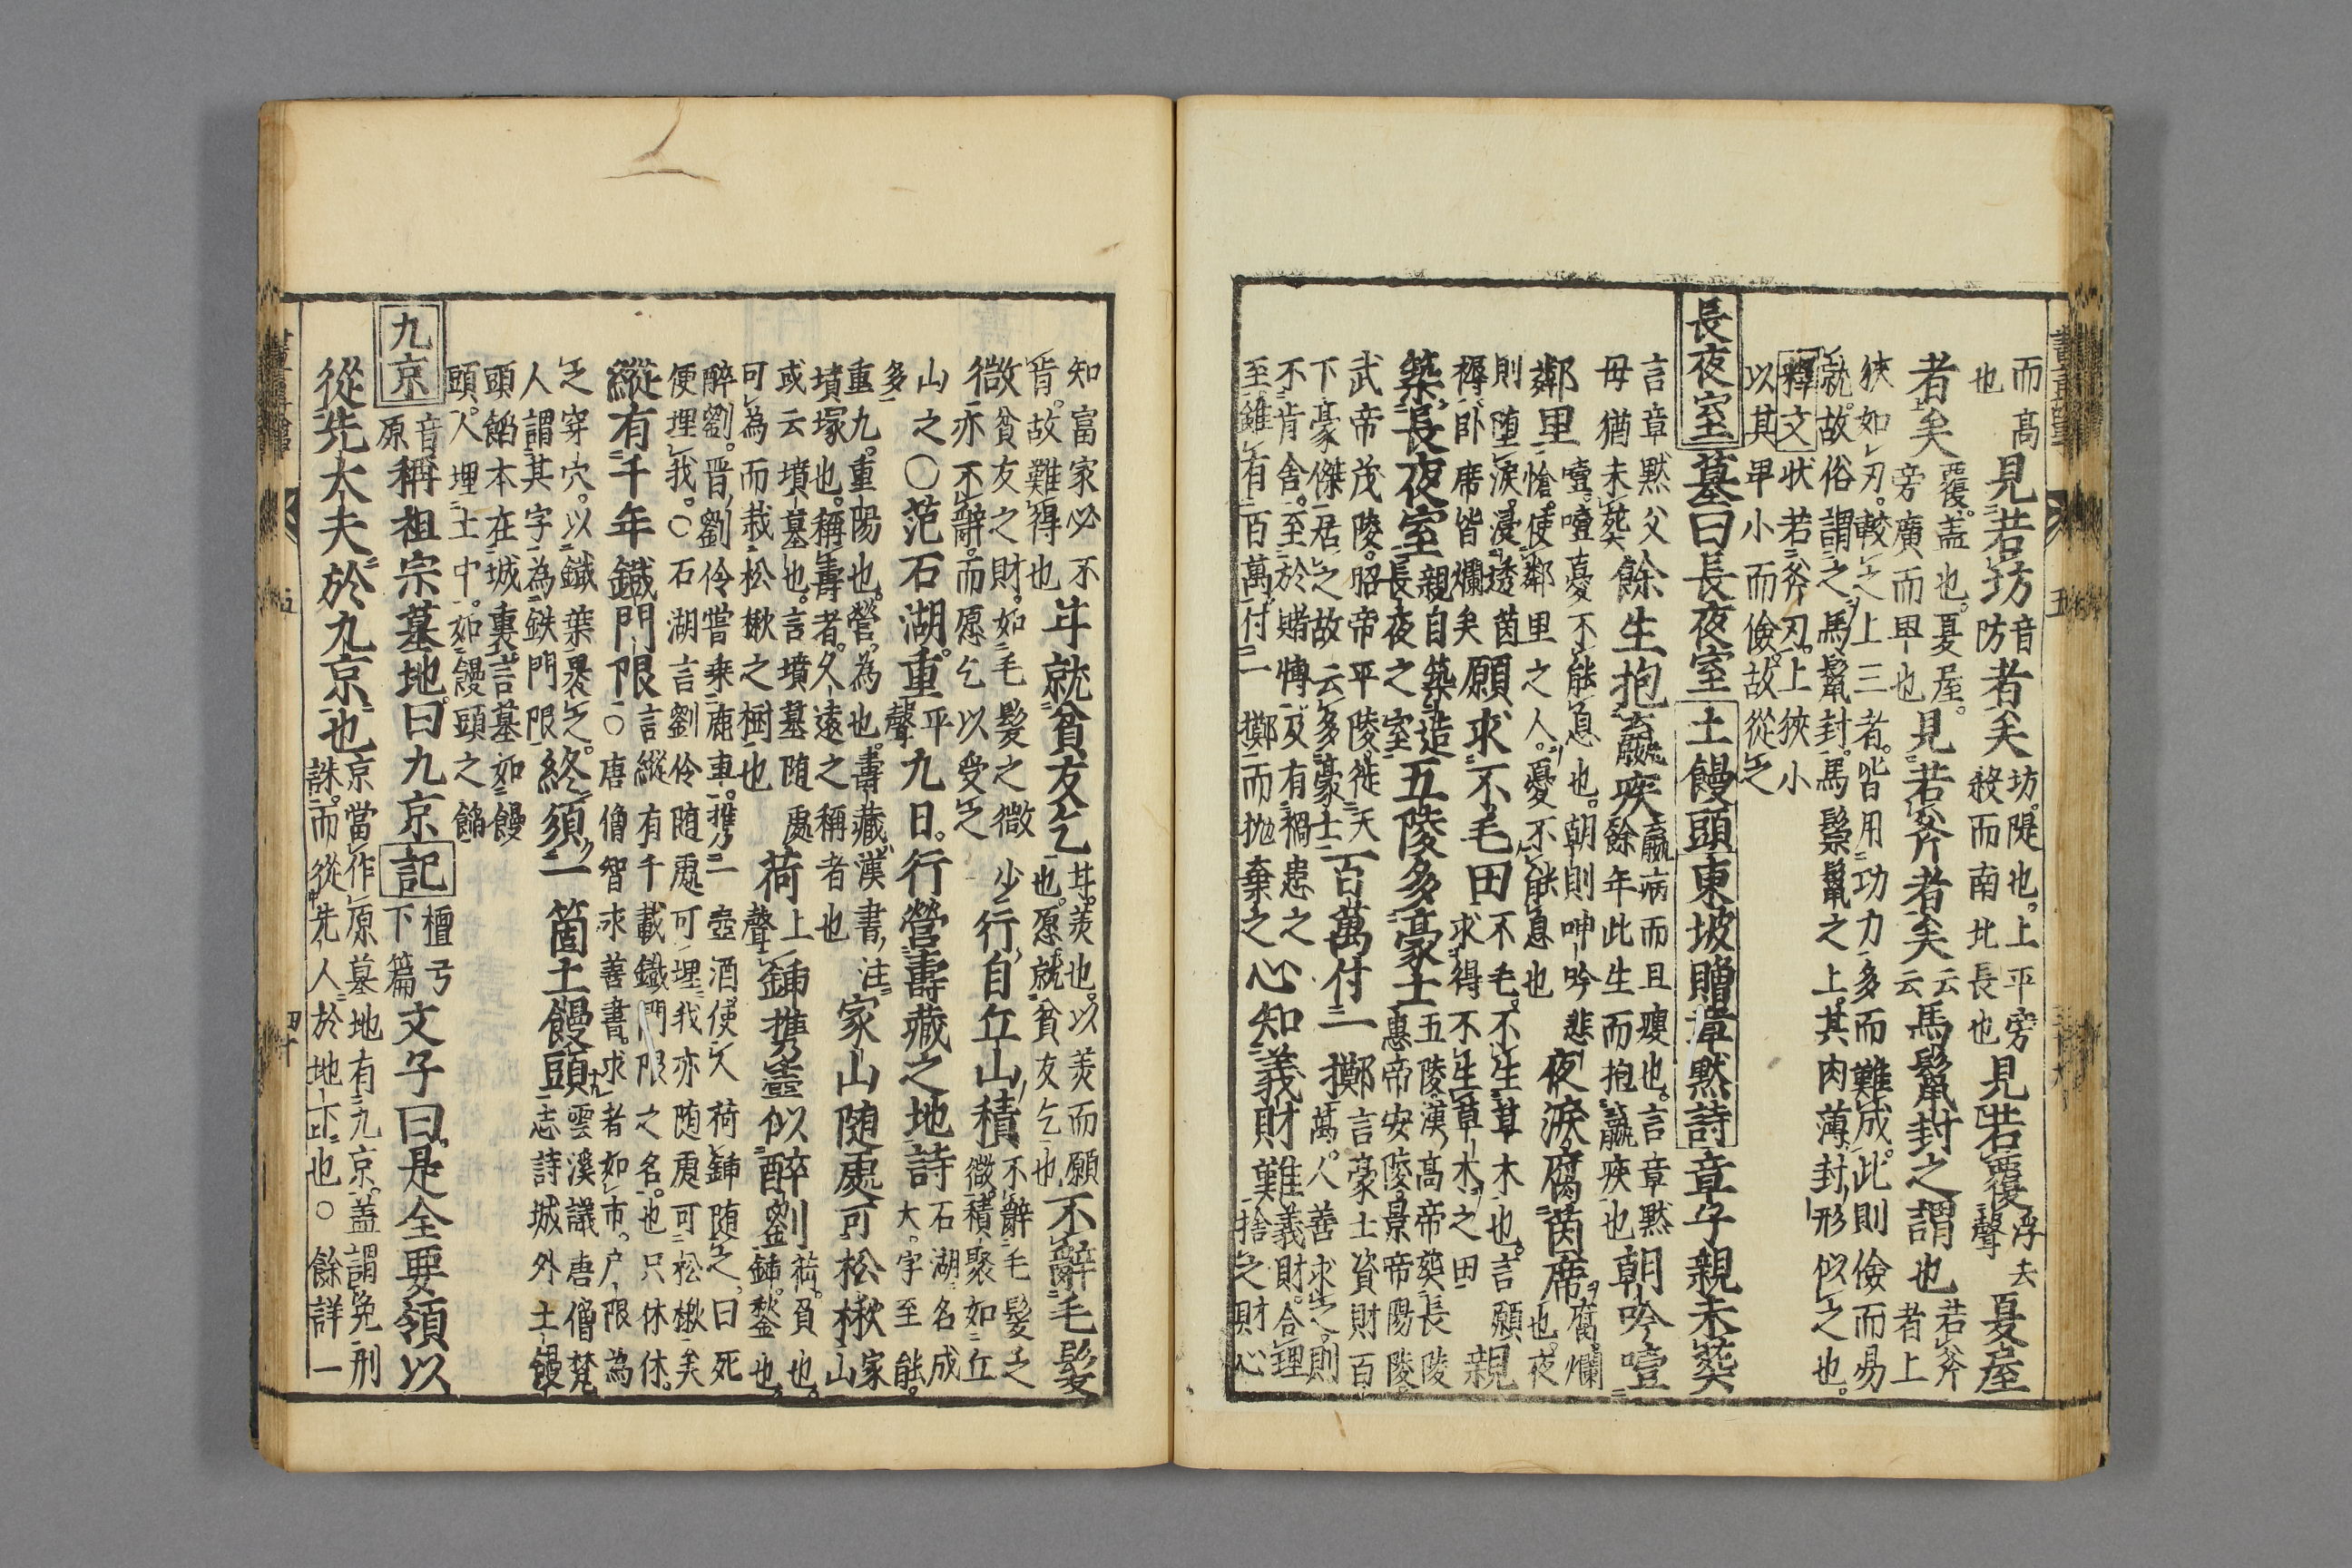 而高也見若坊音防者矣坊隄也上平旁殺而南北長也見若覆浮去聲夏屋
者矣覆蓋也夏屋旁廣而卑也見若斧者矣云云馬鬣封之謂也若斧者上
狹如刃較之上三者皆用功力多而難成此則儉而易
就故俗謂之馬鬣封馬鬃鬣之上其肉薄封形似之也
釋文狀若斧刃上狹小
以其卑小而儉故從之
長夜室墓曰長夜室土饅頭東坡贈章默詩章子親未葬
言章默父母猶未葬餘生抱羸疾羸病而且瘦也言章默餘年此生而抱羸疾也朝吟噎
噎噎憂不能息也朝則呻吟悲
鄰里愴使鄰里之人憂不能息也夜淚腐茵席腐爛也夜
則堕淚浸透茵褥卧席皆爛矣願求不毛田不毛不生草木也言願求得不生草木之田親
築長夜室親自築造長夜之室五陵多豪士五陵漢高帝葬長陵惠帝安陵景帝陽陵
武帝茂陵昭帝平陵徙天下豪傑居之故云多豪士百萬付一擲言豪士資財百萬人善求之則
不肯舍至於賭博及有禍患之至雖有百萬付一擲而抛棄之心知義財難義財合理捨之財心
知富家必不肯故難得也斗就貧友乞斗羨也以羨而願也愿就貧友乞也不辭毛髮
微貧友之財如毛髮之微亦不辭而愿乞以受之少行自丘山積不辭毛髮之微積聚如丘
山之多〇范石湖重平聲九日行營壽藏之地詩石湖名成大字至能
重九重陽也營為也壽藏漢書注墳塚也稱壽者久遠之稱者也家山随處可松楸家山
或云墳墓也言墳墓随處可為而栽松楸之樹也荷上聲鍤携壺似醉劉荷負也鍤鍫也
醉劉晋劉伶嘗乗鹿車携一壺酒使人荷鍤随之曰死便埋我〇石湖言劉伶随處可埋我亦随處可松楸矣
縱有千年鐵門限言縱有千載鐵門限之名也只休休〇唐僧智永善書求者如市户限為
之穿穴以鐵葉裹之終須一箇土饅頭雲溪議唐僧梵志詩城外土饅
人謂其字為鉄門限
頭餡本在城裏言墓如饅頭人埋土中如饅頭之餡
九京音原稱祖宗墓地曰九京記檀弓下篇文子曰是全要領以
從先大夫於九京也京當作原墓地有九京蓋謂免刑誅而從先人於地下也〇餘詳一